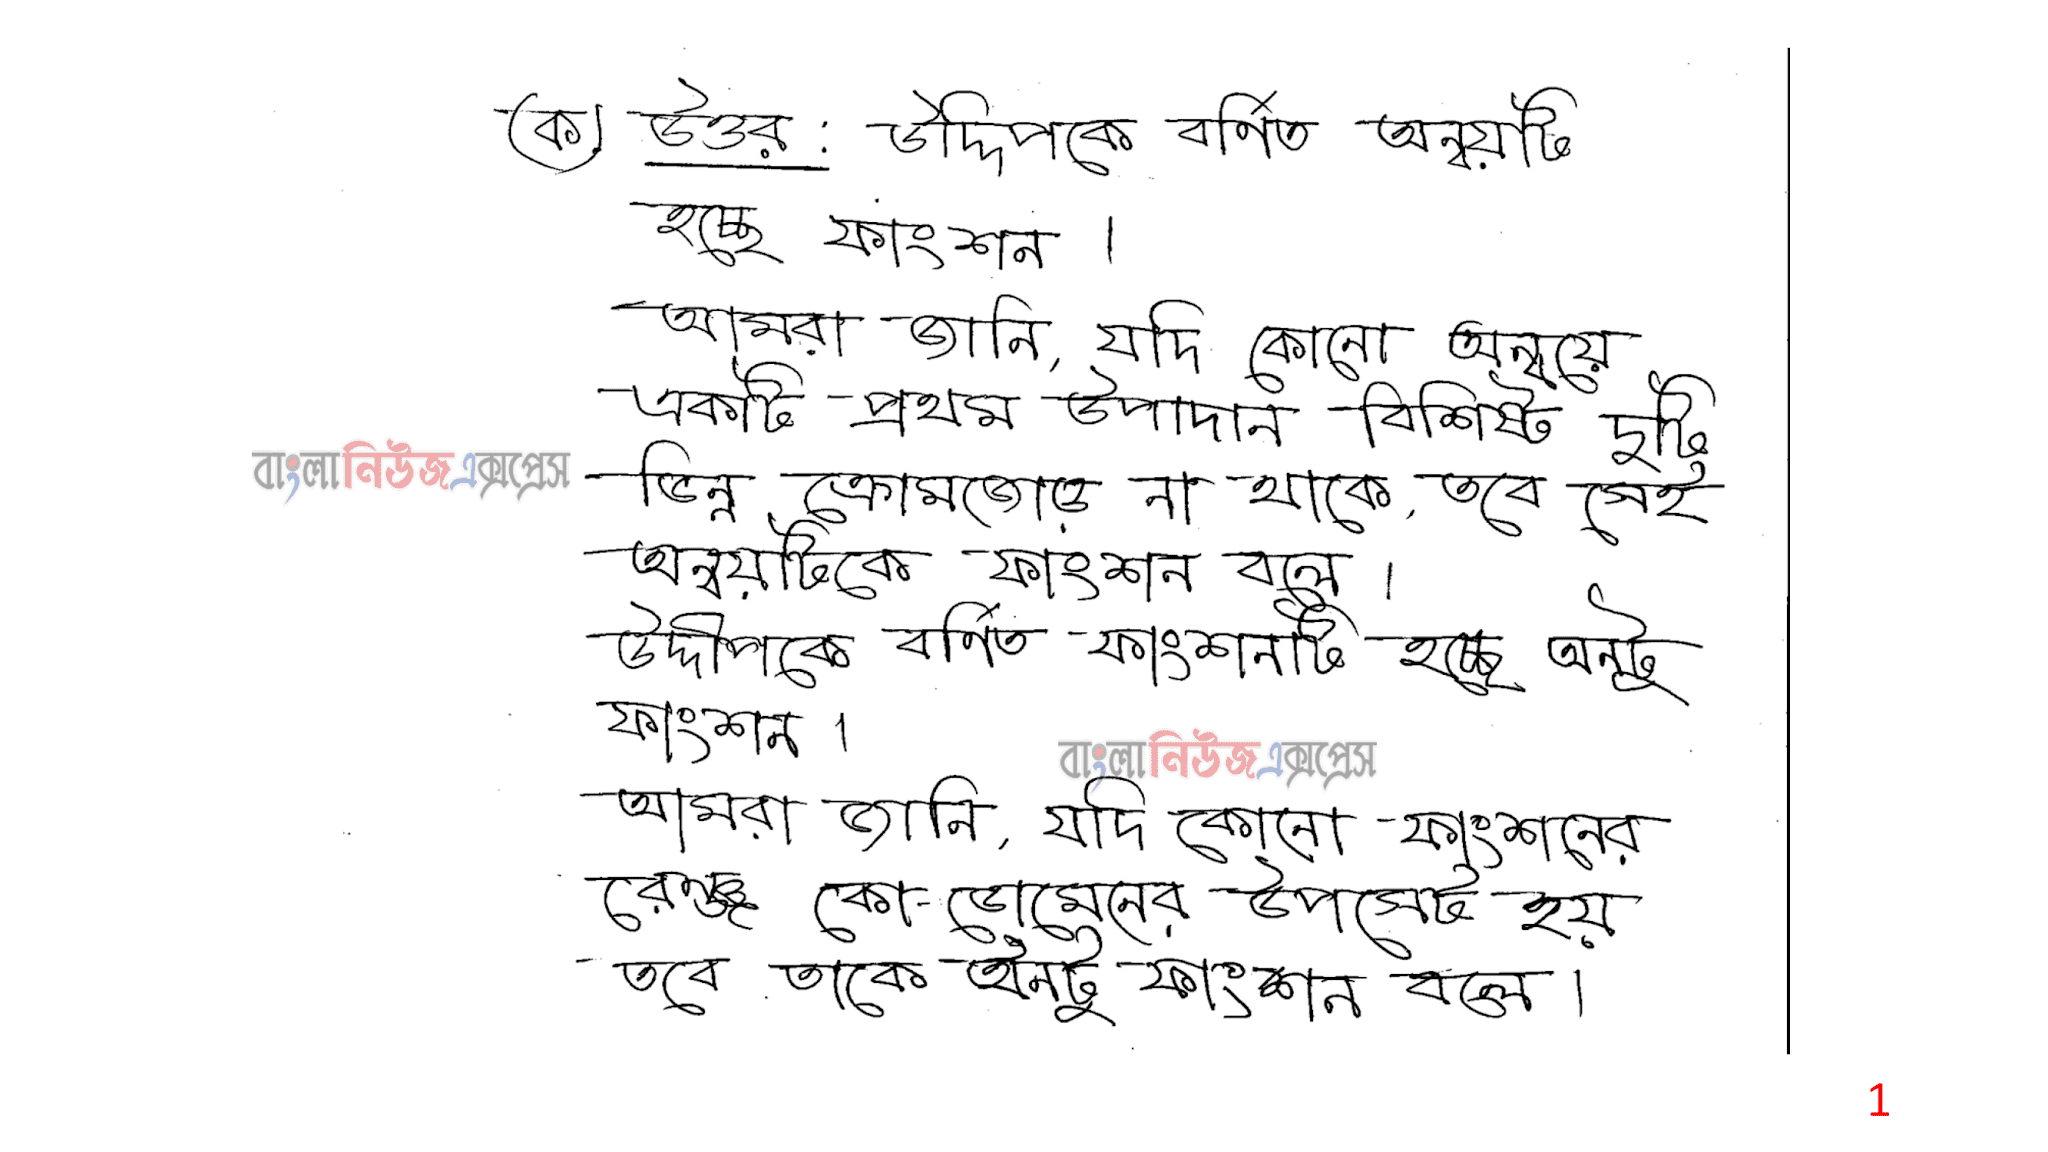 (ক) উত্তর : উদ্দিপকে বর্ণিত অন্বয়টি
হচ্ছে ফাংশন ।
আমরা জানি, যদি কোনো অন্বয়ে
একটি প্রথম উপাদান বিশিষ্ট দুটি
ভিন্ন ক্রোমজোড় না থাকে, তবে সেই
বাংলা নিউজ এক্সপ্রেস
অন্বয়টিকে ফাংশন বলে ।
উদ্দীপকে বর্ণিত ফাংশনটি হচ্ছে অনটু
ফাংশন ।
বাংলা নিউজ এক্সপ্রেস
আমরা জানি, যদি কোনো ফাংশনের
রেঞ্জ কো-ডোমেনের উপসেট হয়
তবে তাকে অনটু ফাংশন বলে ।
1